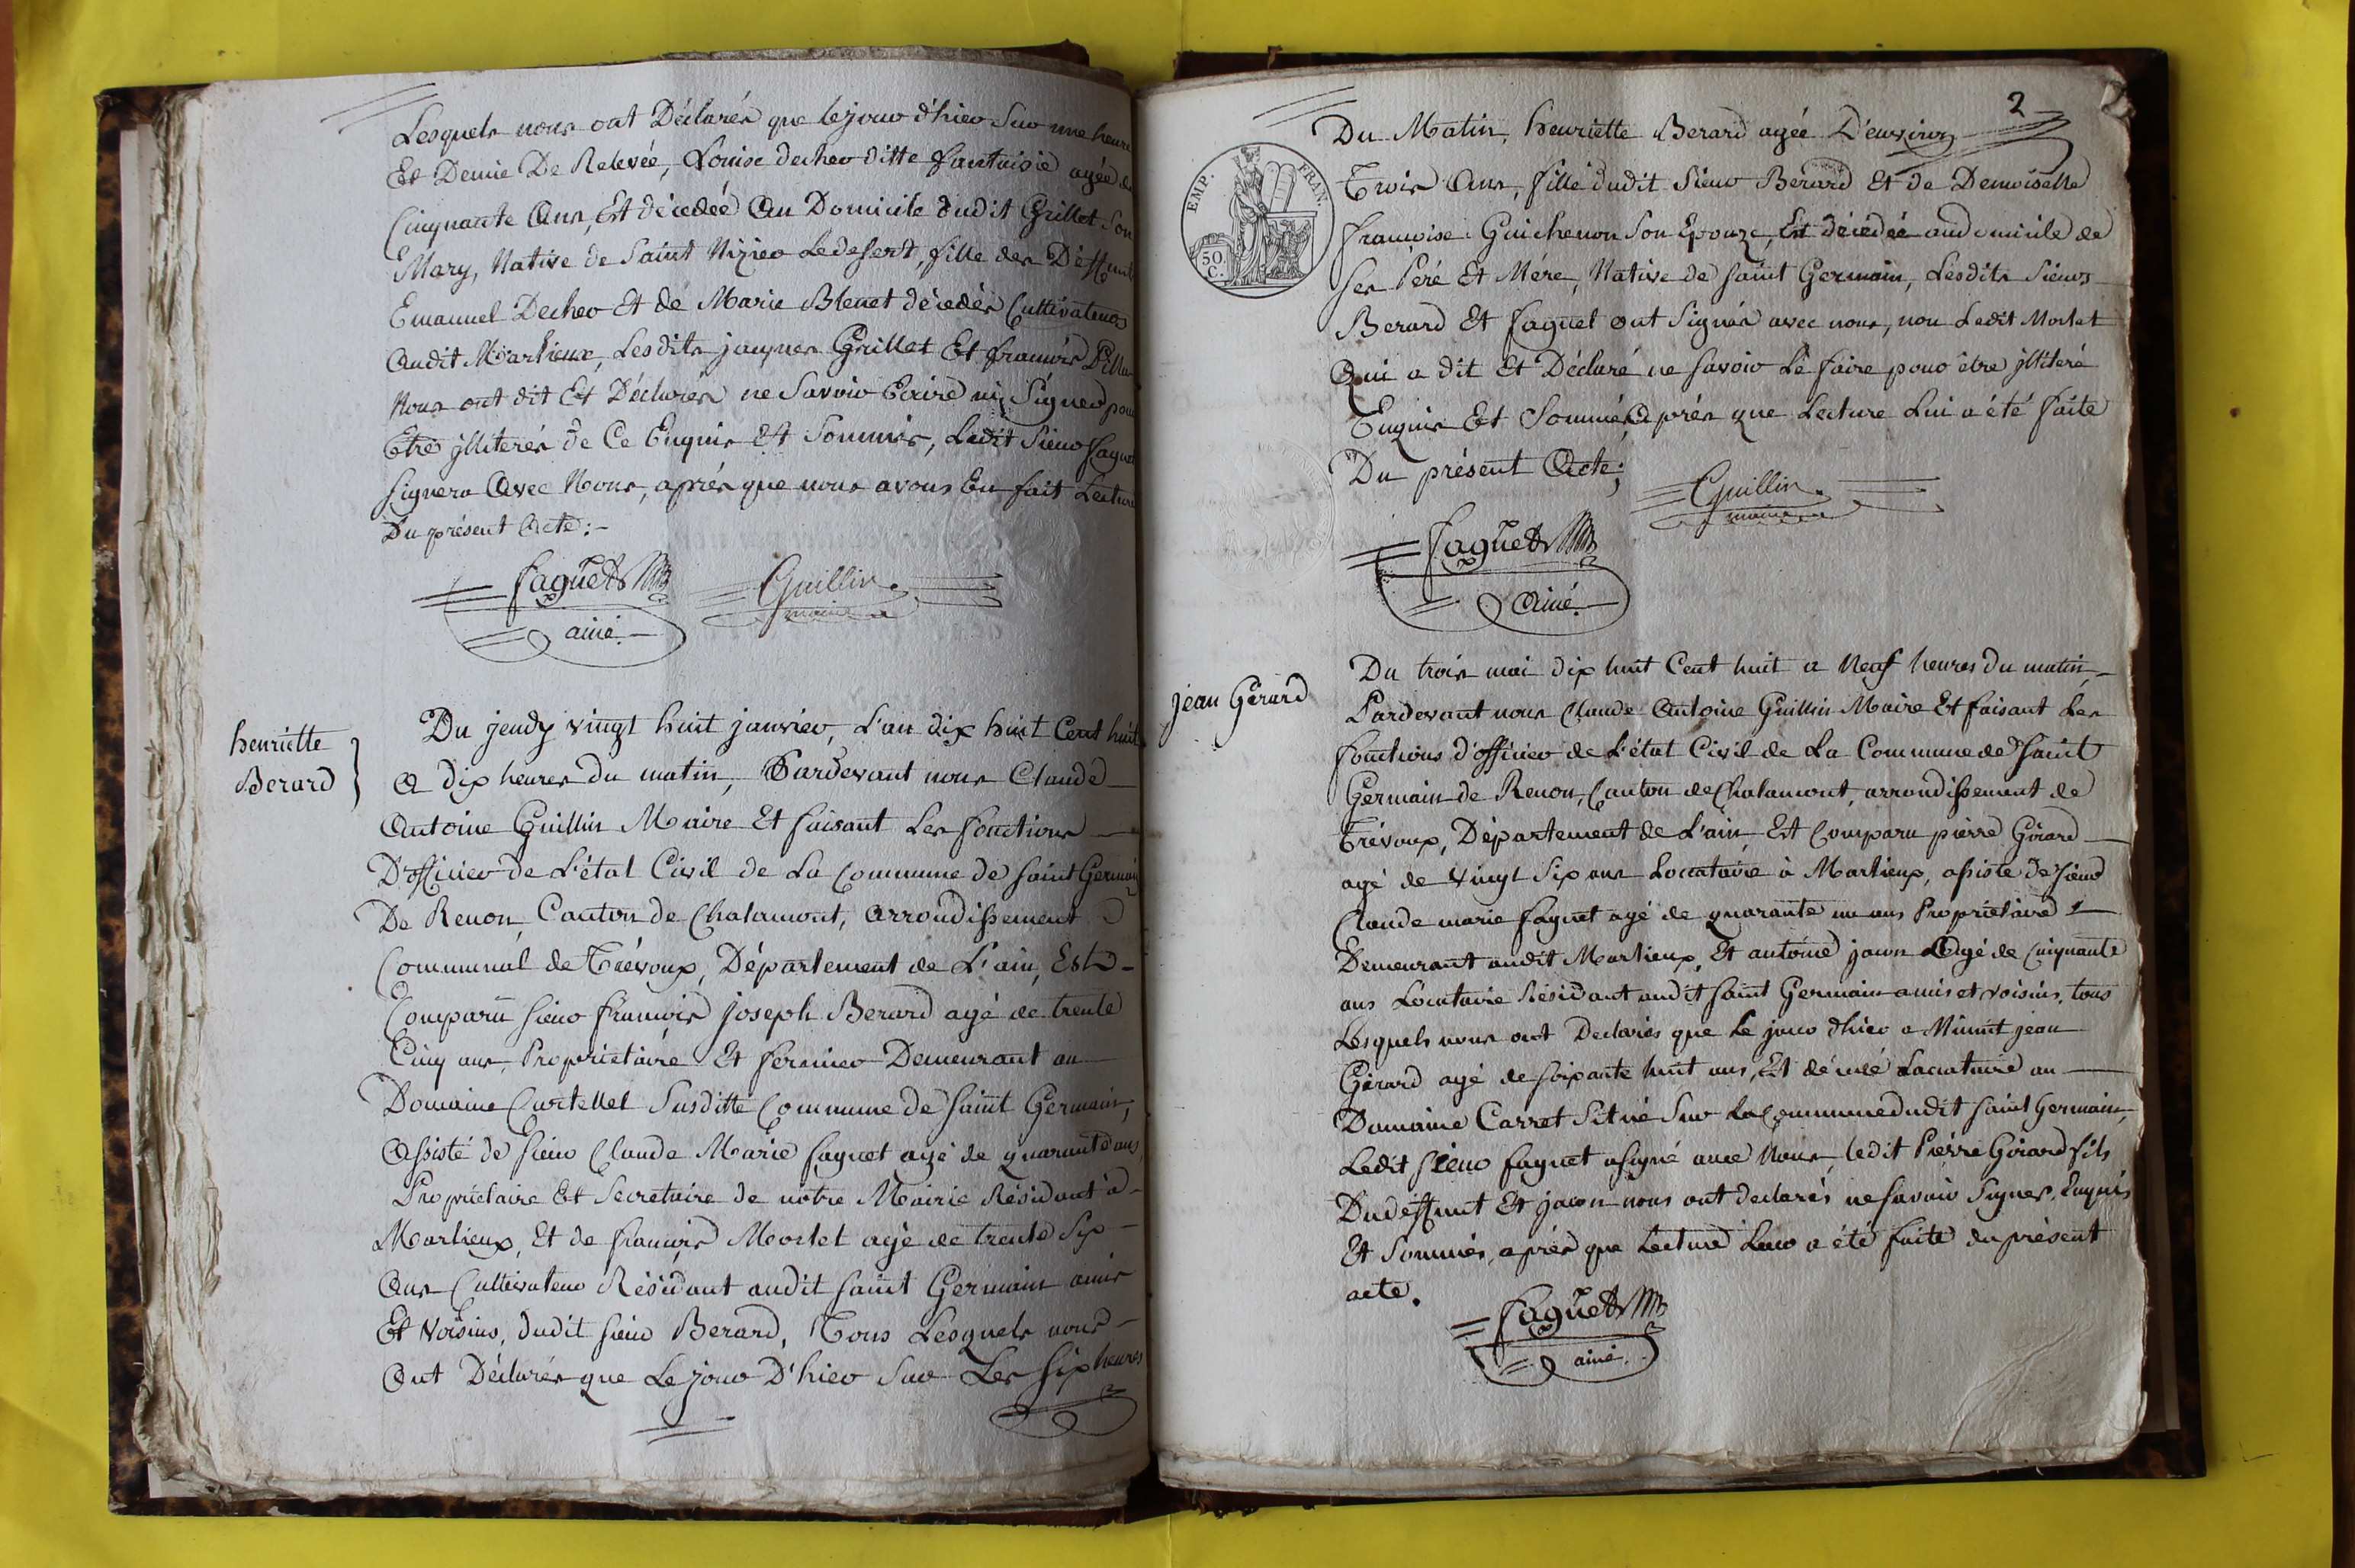 Lesquels nous ont Déclarés que le jour d'hier Sur une heure
Et Demie De Relevée, Louise decher ditte fantaisie agée de
Cinquante Ans, Est décedée Au Domicile dudit Grillet Son
Mary, Native de Saint Nizier Le desert, fille des Deffunts
Emanuel Decher Et de Marie Blenet décedés Cultivateurs
Audit Marlieux, Lesdits jaques Grillet Et francois
Nous ont dit Et Déclarés ne Savoir Ecrire ni Signer pour
Etre jlliterés de Ce Enquis Et Sommés, Ledit Sieur faguet
Signera Avec Nous, après que nous avons En fait Lecture
Du présent Acte :-
faguet
ainé
Guillin
maire
henriette
Berard
Du jeudy vingt huit janvier, L'an dix huit Cent huit
A dix heures du matin, Pardevant nous Claude
Antoine Guillin Maire Et faisant Les fonctions
D'officier de L'état Civil de La Commune de saint Germain
De Renon, Canton de Chalamont, Arrondissement
Communal de Trévoux, Département de L'ain, Est
Comparu sieur francois joseph Berard agé de trente
Cinq ans, Proprietaire Et fermier Demeurant au
Domaine Curtellet Susditte Commune de saint Germain,
Assisté de sieur Claude Marie faguet agé de quarante ans
Propriétaire Et Secretaire de notre Mairie Résidant à
Marlieux, Et de francois Morlet agé de trente six
Ans Cultivateur Résidant audit saint Germain amis
Et Voisins, dudit sieur Berard, Tous Lesquels nous
Ont Déclarés que Le jour D'hier Sur Les six heures
2
Du Matin, henriette Berard agée D'environ
EMP. FRAN.
50 C.
Trois Ans, fille dudit Sieur Berard Et de Demoiselle
françoise Guichenon Son Epouze, Est décédée au domicile de
Ses Péré Et Mére, Native de saint Germain, Lesdits Sieurs
Berard Et faguet ont Signés avec nous, non Ledit Morlet
Qui a dit Et Déclaré ne savoir Le faire pour être jlliteré
Enquis Et Sommé, Après que Lecture Lui a été faite
Du présent Acte;
Guillin
maire
faguet
Ainé
jean Gérard
Du trois mai dix huit Cent huit a Neuf heures du matin,
Pardevant nous Claude Antoine Guillin Maire Et faisant Les
fonctions d'officier de L'état Civil de La Commune de saint
Germain de Renon, Canton de Chalamont, arrondissement de
Trévoux, Département de L'ain, Est Comparu pierre Gérard
agé de vingt Six ans Locataire à Marlieux, assisté de sieur
Claude marie faguet agé de quarante un ans Propriétaire
Demeurant audit Marlieux, Et antoine jacon Agé de Cinquante
ans Locataire Résidant audit saint Germain amis et voisins, tous
Lesquels nous ont Declarés que Le jour d'hier a Minuit jean
Gérard agé de soixante huit ans, Est décédé Locataire au
Domaine Carret Situé Sur La Commune dudit saint Germain,
Ledit sieur faguet a signé avec Nous, ledit Pierre Gérard fils
Du deffunt Et jacon nous ont declarés ne savoir Signer, Enquis
Et Sommés, après que Lecture Leur a été faite du présent
acte.
faguet
ainé